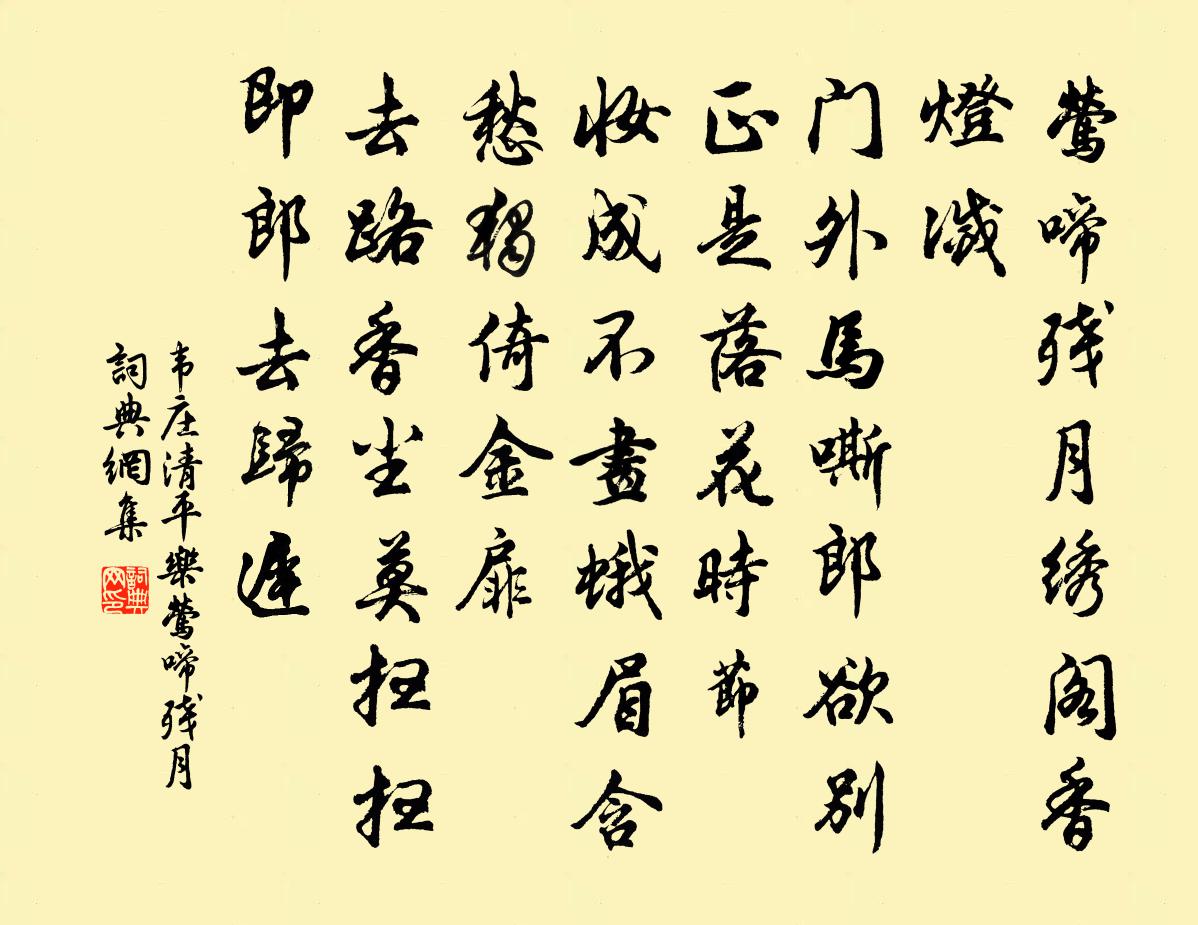 鶯啼残月绣阁香
燈滅
门外馬嘶郎欲别
正是落花時節
妆成不畫蛾眉含
愁獨倚金扉
去路香尘莫扫扫
即郎去歸遲
韦庄清平樂鶯啼残月
詞典網集
詞典
网印